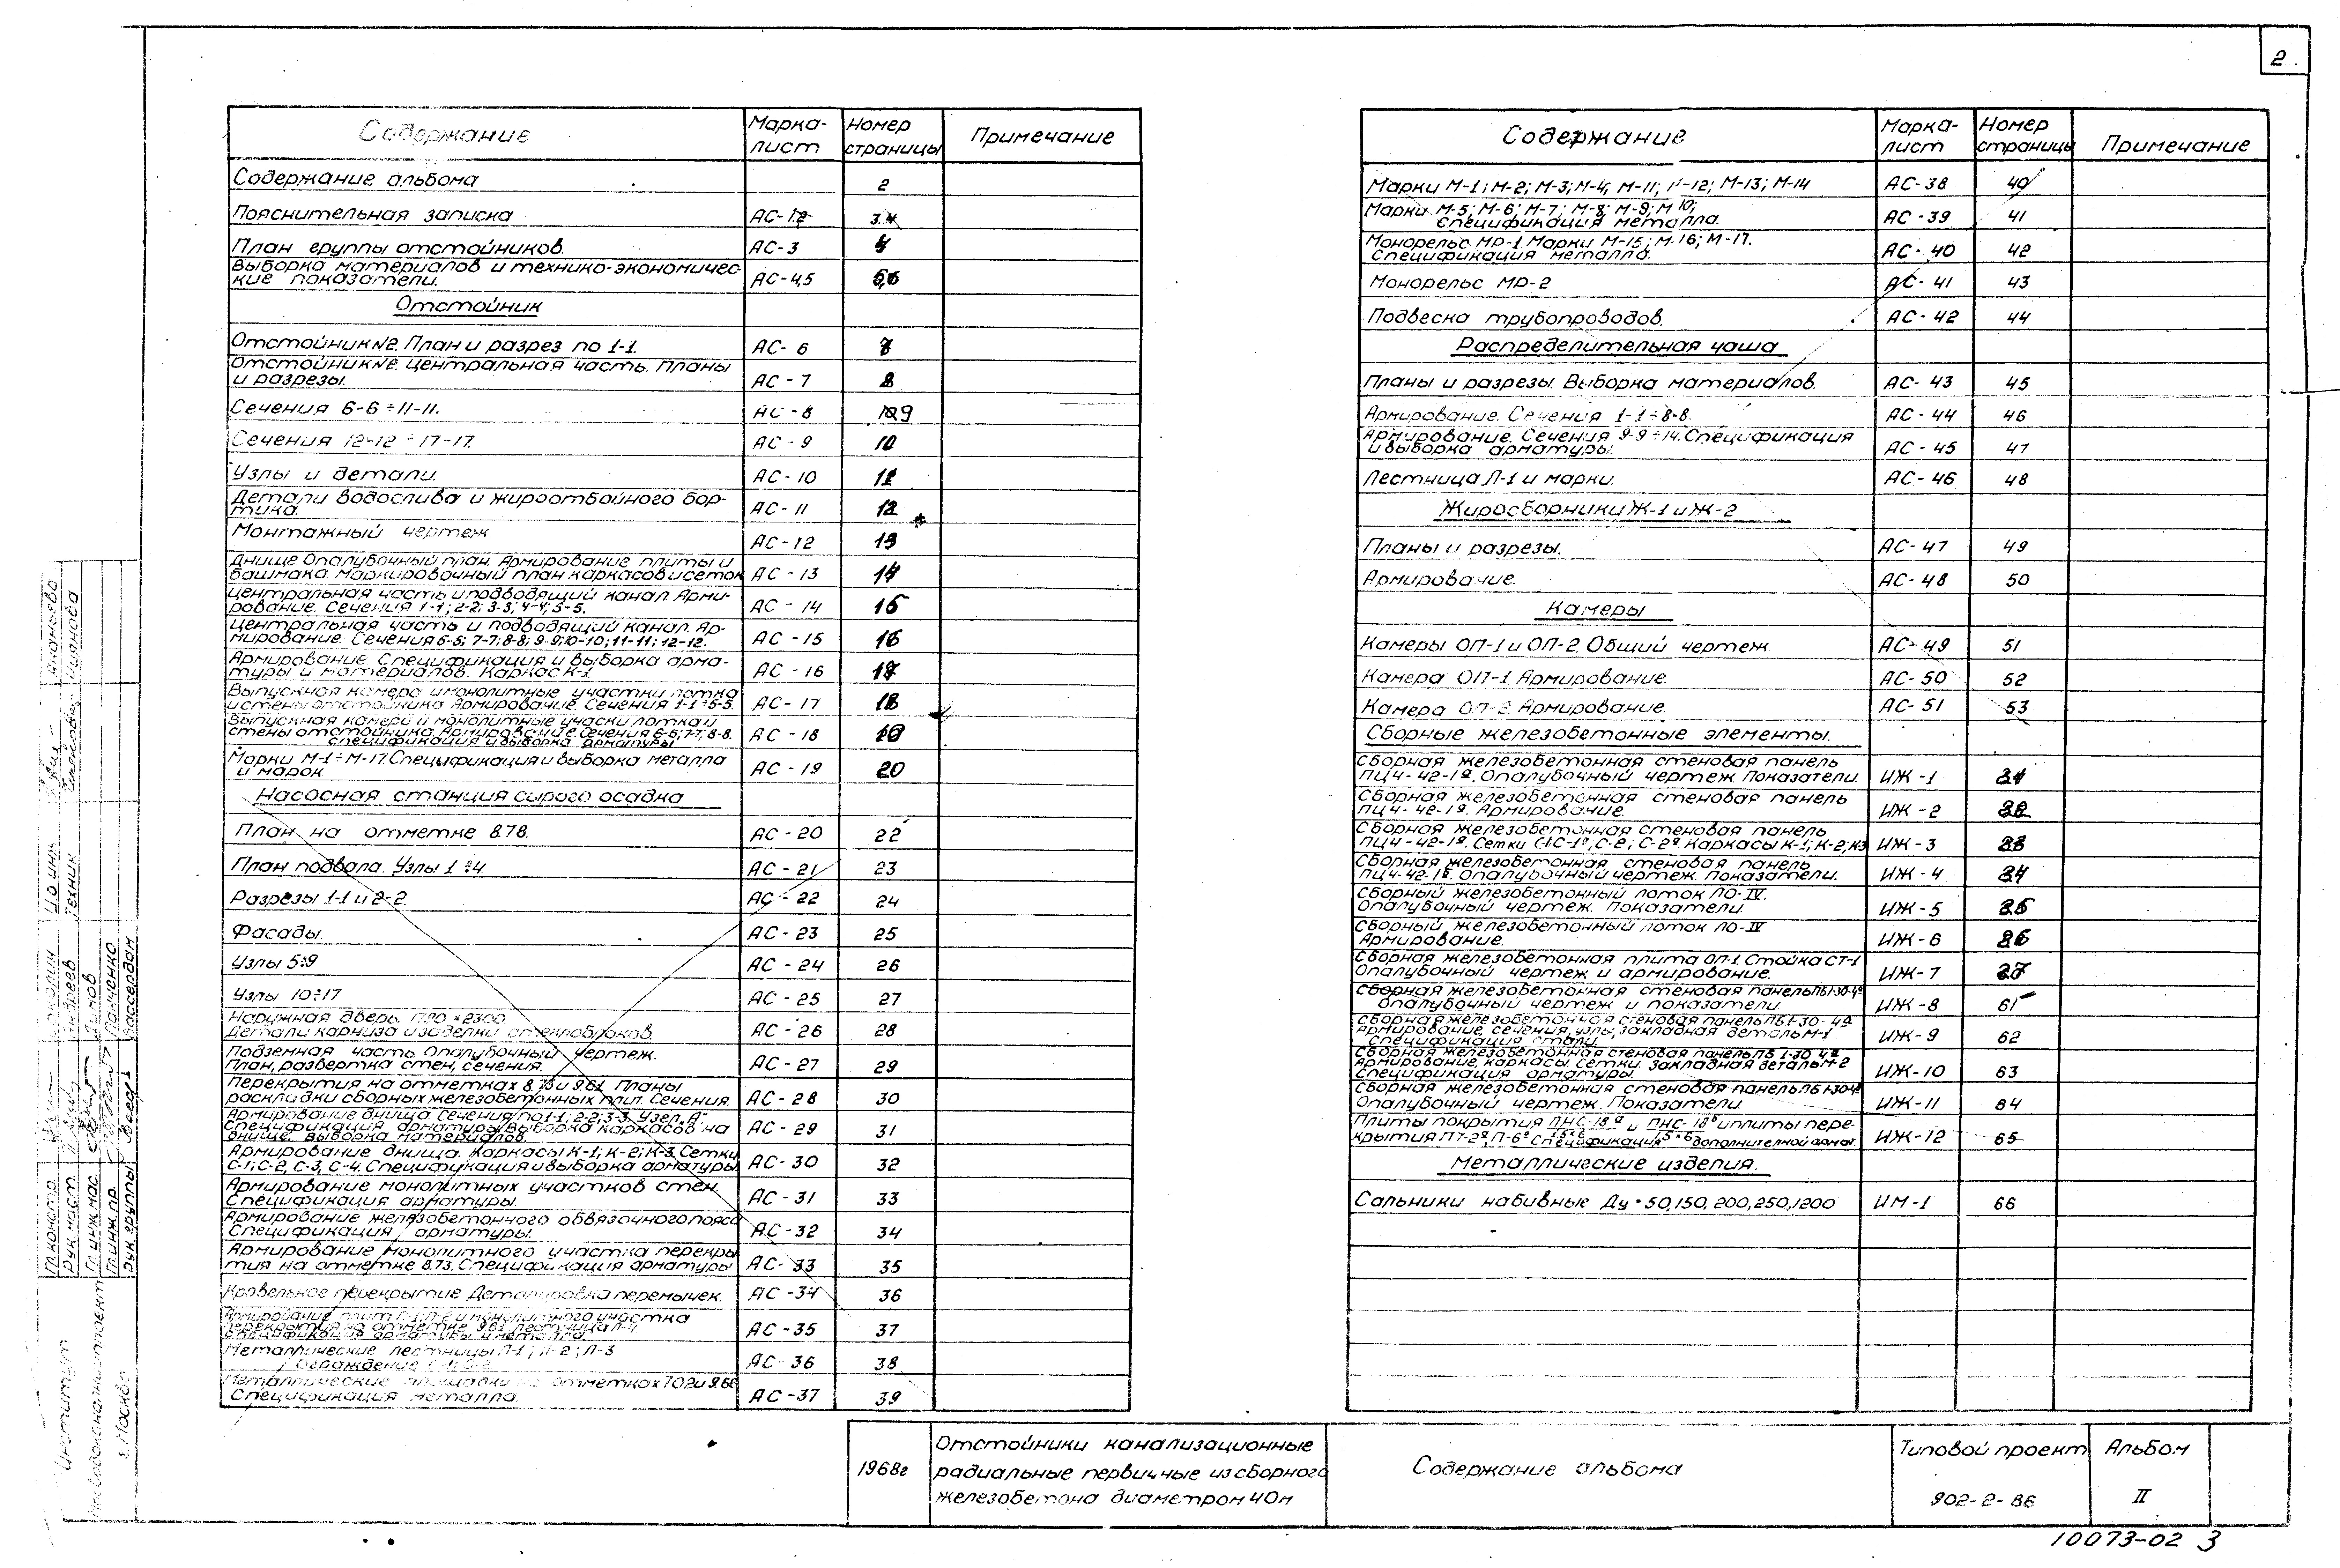 2
Содержание | Марка-лист | Номер страницы | Примечание
Содержание альбома | 2
Пояснительная записка | АС-1,2 | 3,4
План группы отстойников. | АС-3
Выборка материалов и технико-экономичес-
кие показатели. | АС-4,5
Отстойник
Отстойник №2. План и разрез по 1-1. | АС-6 | 7
Отстойник №2. Центральная часть. Планы
и разрезы. | АС-7 | 8
Сечения 6-6÷11-11. | АС-8 | 9
Сечения 12-12÷17-17. | АС-9 | 10
Узлы и детали. | АС-10 | 11
Детали водослива и жироотбойного бор-
тика. | АС-11 | 12
Монтажный чертеж | АС-12 | 13
Днище. Опалубочный план. Армирование плиты и
башмака. Маркировочный план каркасов и сеток | АС-13 | 14
Центральная часть и подводящий канал. Арми-
рование. Сечения 1-1; 2-2; 3-3; 4-4; 5-5. | АС-14 | 15
Центральная часть и подводящий канал. Ар-
мирование. Сечения 6-6; 7-7; 8-8; 9-9; 10-10; 11-11; 12-12. | АС-15 | 16
Армирование. Спецификация и выборка арма-
туры и материалов. Каркас К-1. | АС-16 | 17
Выпускная камера и монолитные участки лотка
и стены отстойника. Армирование. Сечения 1-1÷5-5. | АС-17 | 18
Выпускная камера и монолитные учаски лотка и
стены отстойника. Армирование. Сечения 6-6; 7-7; 8-8.
спецификация и выборка арматуры | АС-18 | 19
Марки М-1÷М-17. Спецификация и выборка металла
и марок | АС-19 | 20
Насосная станция сырого осадка
План на отметке 8.78. | АС-20 | 22
План подвала. Узлы 1÷4. | АС-21 | 23
Разрезы 1-1 и 2-2. | АС-22 | 24
Фасады. | АС-23 | 25
Узлы 5÷9 | АС-24 | 26
Узлы 10÷17 | АС-25 | 27
Наружная дверь. 1790×2300.
Детали карниза и заделки стеклоблоков. | АС-26 | 28
Подземная часть. Опалубочный чертеж.
План, развертка стен, сечения. | АС-27 | 29
Перекрытия на отметках 8.73 и 9.61. Планы
раскладки сборных железобетонных плит. Сечения. | АС-28 | 30
Армирование днища. Сечения по 1-1; 2-2; 3-3. Узел „А".
Спецификация арматуры. Выборка каркасов на
днище. Выборка материалов. | АС-29 | 31
Армирование днища. Каркасы К-1; К-2; К-3. Сетки
С-1; С-2, С-3, С-4. Спецификация и выборка арматуры | АС-30 | 32
Армирование монолитных участков стен.
Спецификация арматуры. | АС-31 | 33
Армирование железобетонного обвязочного пояса
Спецификация арматуры. | АС-32 | 34
Армирование монолитного участка перекры
тия на отметке 8.73. Спецификация арматуры. | АС-33 | 35
Кровельное перекрытие. Деталировка перемычек. | АС-34 | 36
Армирование плит П-1; П-2 и монолитного участка
перекрытия на отметке 9.61. Лестница Л-4.
Спецификация арматуры и металла. | АС-35 | 37
Металлические лестницы Л-1; Л-2; Л-3
Ограждение | АС-36 | 38
Металлические площадки на отметках 7.02 и 9.66
Спецификация металла. | АС-37 | 39
Содержание | Марка-лист | Номер страницы | Примечание
Марки М-1; М-2; М-3; М-4; М-11; М-12; М-13; М-14 | АС-38 | 40
Марки М-5; М-6; М-7; М-8; М-9; М 10;
Спецификация металла. | АС-39 | 41
Монорельс МР-1. Марки М-15; М-16; М-17.
Спецификация металла. | АС-40 | 42
Монорельс МР-2 | АС-41 | 43
Подвеска трубопроводов. | АС-42 | 44
Распределительная чаша
Планы и разрезы. Выборка материалов. | АС-43 | 45
Армирование. Сечения 1-1÷8-8. | АС-44 | 46
Армирование. Сечения 9-9÷14. Спецификация
и выборка арматуры. | АС-45 | 47
Лестница Л-1 и марки. | АС-46 | 48
Жиросборники Ж-1 и Ж-2
Планы и разрезы. | АС-47 | 49
Армирование. | АС-48 | 50
Камеры
Камеры ОП-1 и ОП-2. Общий чертеж. | АС-49 | 51
Камера ОП-1 Армирование. | АС-50 | 52
Камера ОП-2. Армирование. | АС-51 | 53
Сборные железобетонные элементы.
Сборная железобетонная стеновая панель
ПЦ4-42-1а. Опалубочный чертеж. Показатели. | ИЖ-1
Сборная железобетонная стеновая панель
ПЦ4-42-1а. Армирование. | ИЖ-2
Сборная железобетонная стеновая панель
ПЦ4-42-1а. Сетки С-1; С-1а; С-2; С-2а. Каркасы К-1; К-2; К3 | ИЖ-3
Сборная железобетонная стеновая панель
ПЦ4-42-1б. Опалубочный чертеж. Показатели. | ИЖ-4
Сборный железобетонный лоток ЛО-IV.
Опалубочный чертеж. Показатели. | ИЖ-5
Сборный железобетонный лоток ЛО-IV
Армирование. | ИЖ-6
Сборная железобетонная плита ОП-1. Стойка СТ-1
Опалубочный чертеж и армирование. | ИЖ-7
Сборная железобетонная стеновая панель ПБ1-30-4а
Опалубочный чертеж и показатели | ИЖ-8 | 61
Сборная железобетонная стеновая панель ПБ1-30-4а
Армирование, сечения, узлы, закладная деталь М-1
Спецификация стали. | ИЖ-9 | 62
Сборная железобетонная стеновая панель ПБ1-30-4а
Армирование, каркасы. Сетки. Закладная деталь М-2
Спецификация арматуры. | ИЖ-10 | 63
Сборная железобетонная стеновая панель ПБ1-30-4
Опалубочный чертеж. Показатели. | ИЖ-11 | 64
Плиты покрытия ПНС-18а и ПНС-18б и плиты пере-
крытия ПТ-2а, П-6а Спецификация дополнительной армат. | ИЖ-12 | 65
Металлические изделия.
Сальники набивные Ду=50, 150, 200, 250, 1200 | ИМ-1 | 66
1968г
Отстойники канализационные
радиальные первичные из сборного
железобетона диаметром 40м
Содержание альбома
Типовой проект
902-2-86
Альбом
II
10073-02 3
Институт
г. Москва
Гл. констр.
Рук. маст.
Гл. инж. мас.
Гл. инж. пр.
Рук. группы
Андреев
Липов
Панченко
Вассердам
Техник